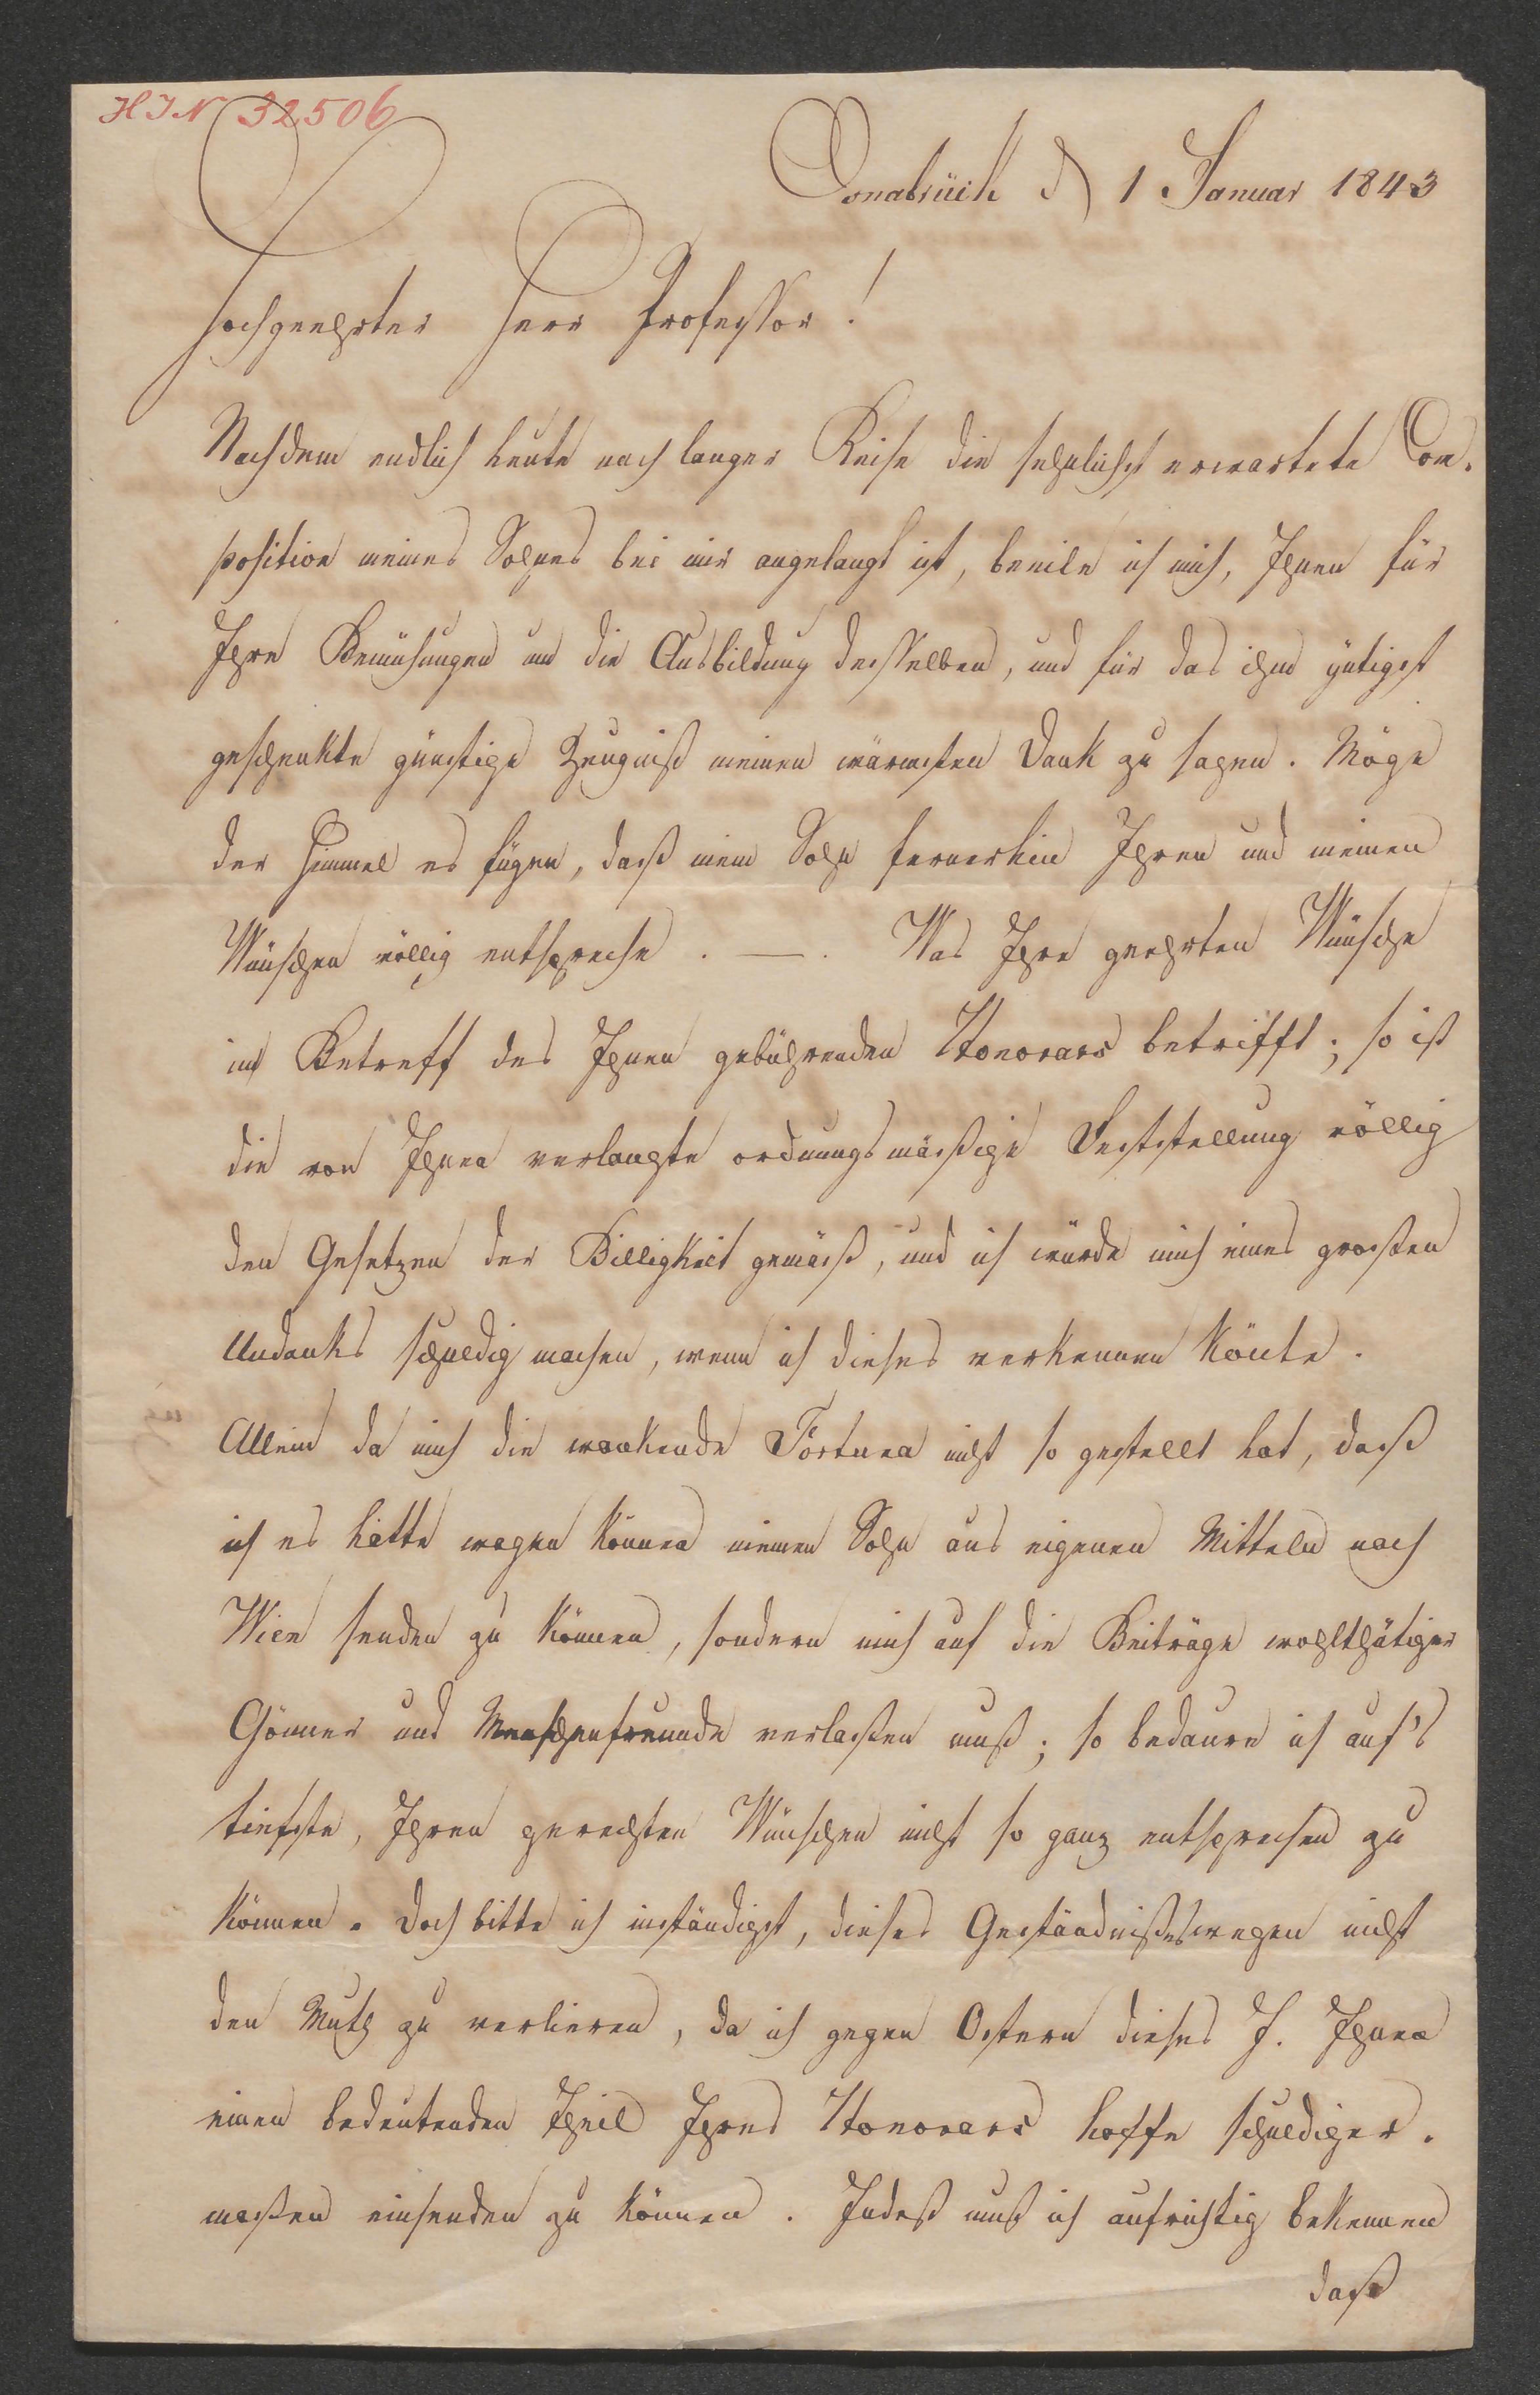 HIN 32506
Osnabrück d 1 Januar 1843
Hochgeehrter Herr Professor!
Nachdem endlich heute nach langer Reise die sehnlichst erwartete Com-
position meines Sohnes bei mir angelangt ist, beeile ich mich, Ihnen für
Ihre Bemühungen um die Ausbildung desselben, und für das ihm gütigst
geschenkte günstige Zeugniß meinen wärmsten Dank zu sagen. Möge
der Himmel es fügen, daß mein Sohn fernerhin Ihren und meinen
Wünschen völlig entspreche. —. Was Ihre geehrten Wünsche
in Betreff des Ihnen gebührenden Honorars betrifft; so ist
die von Ihnen verlangte ordnungsmäßige Feststellung völlig
den Gesetzen der Billigkeit gemäß, und ich würde mich eines großen
Undanks schuldig machen, wenn ich dieses verkennen könte.
Allein da mich die wankende Fortuna nicht so gestellt hat, daß
ich es hätte wagen können meinen Sohn aus eigenen Mitteln nach
Wien senden zu können, sondern mich auf die Beiträge wohlthätiger
Gönner und Menschenfreunde verlaßen muß; so bedaure ich auf's
tiefste, Ihren gerechten Wünschen nicht so ganz entsprechen zu
können. Doch bitte ich inständigst, dieses Geständnißes wegen nicht
den Muth zu verlieren, da ich gegen Ostern dieses J. Ihnen
einen bedeutenden Theil Ihres Honorars hoffe schuldiger-
maßen einsenden zu können. Indeß muß ich aufrichtig bekennen
daß